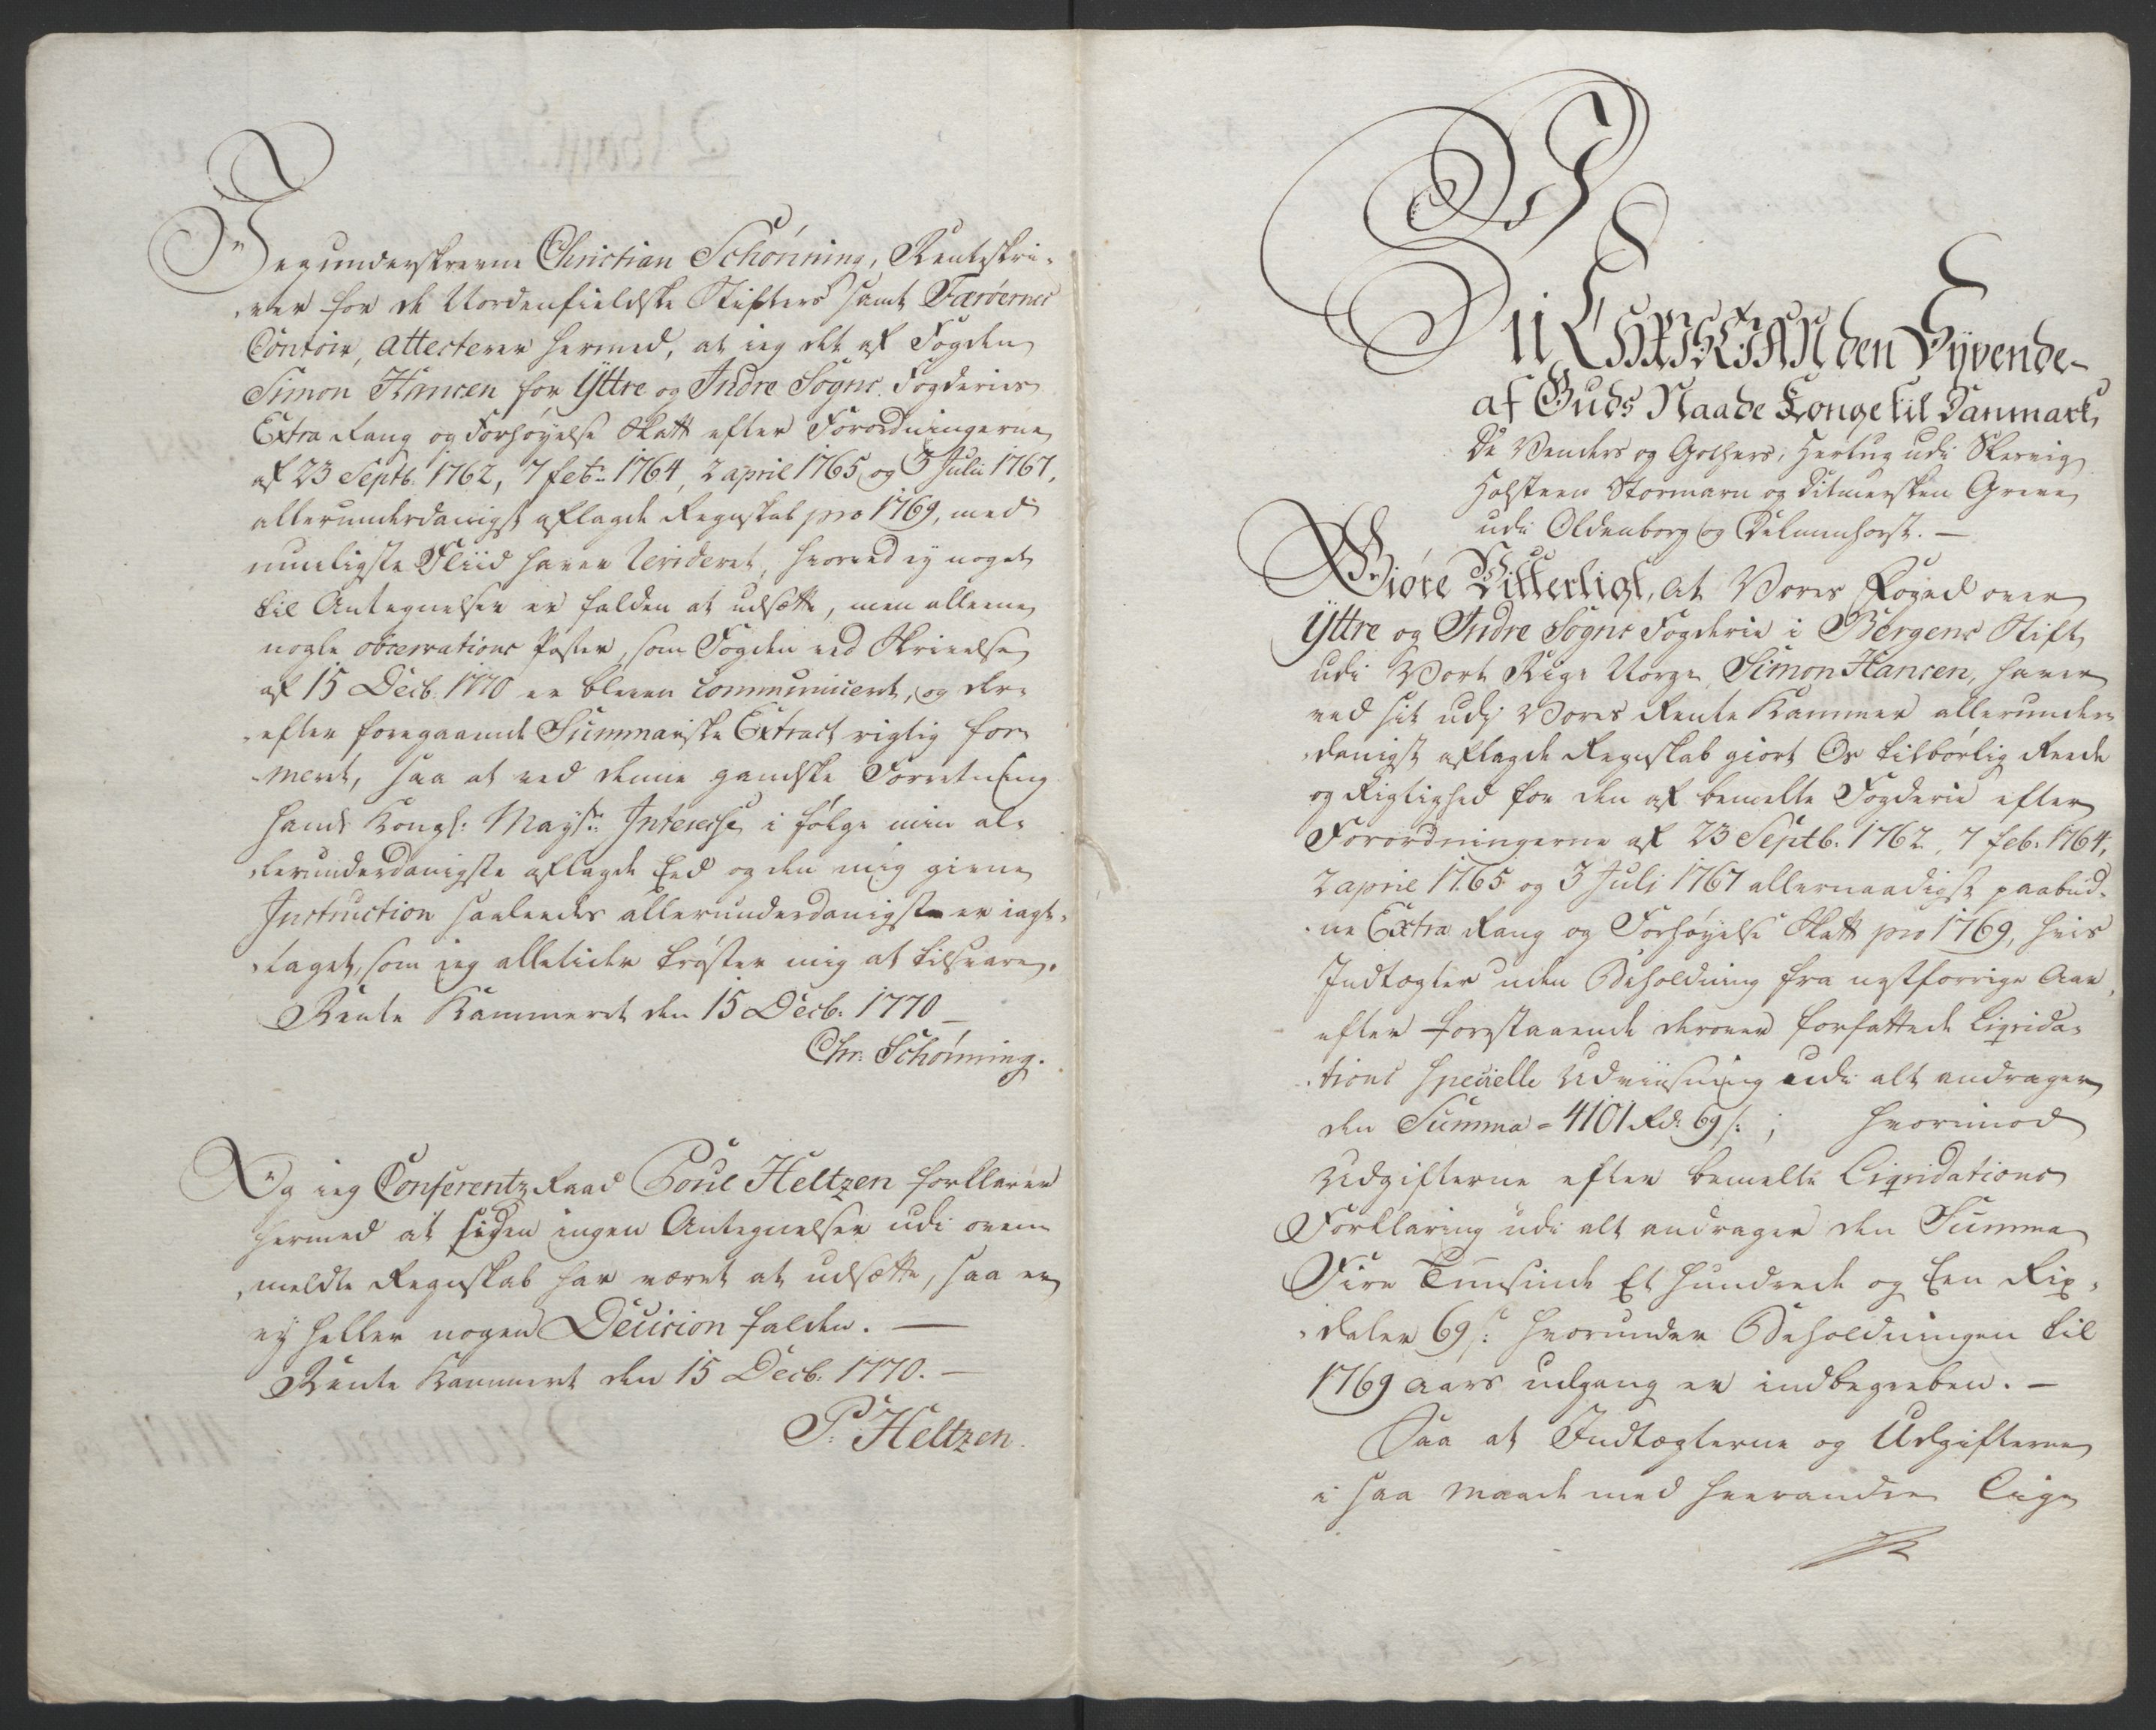 Jeg underskrevne Christian Schønning, Renteskri-
-ver for de Nordenfieldske Stifters samt Færøernes
Contoir, Attesterer hermed, at ieg det af Fogden
Simon Hansen for Yttre og Indre Sogns Fogderies
Extra Rang og Forhøyelse Skatt efter Forordningerne
af 23 Septb. 1762, 7 febr. 1764, 2 april 1765, og 3 Julii 1767,
allerunderdanigst aflagde Regnskab pro 1769, med
mueligste Fliid haver Revideret, hvorved ey noget
til Antegnelser er falden at udsætte, men alleene
nogle observations Poster, som Fogden ved Skrivelse
af 15 Decb. 1770 er bleven communiceret, og der-
-efter foregaaende Summariske Extract rigtig for-
-meret, saa at ved denne gandske Forretning
Hans Kongl: Mayts: Interesse, i følge min al-
-lerunderdanigste aflagde Eed og den mig givne
Instruction saaledes allerunderdanigst er iagt-
-taget, som ieg alletider trøster mig at tilsvare.
Rente Kammeret den 15 Decb: 1770 —
Chr: Schønning.
Og ieg Conferentz Raad Poul Heltzen forklarer
hermed at siden ingen Antegnelser udi oven-
-meldte Regnskab har været at udsætte, saa er
ey heller nogen Decision falden. —
Rente Kammeret den 15 Decb. 1770. —
P. Heltzen.
Vii CHRISTIAN den Syvende-
af Guds Naade Konge til Danmark,
De Venders og Gothers, Hertug udi Slesvig
Holsteen Stormarn og Ditmersken Greve
udi Oldenborg og Delmenhorst. —
Giøre Vitterligt, At Vores Foged over
Yttre og Indre Sogns Fogderie i Bergens Stift
udi Vort Rige Norge, Simon Hansen, haver
ved sit udj Vores Rente Kammer allerunder-
-danigst aflagde Regnskab giort Os tilbørlig Reede
og Rigtighed for den af bemelte Fogderie efter
Forordningerne af 23 Septb. 1762, 7 feb. 1764,
2 april 1765 og 3 Julj 1767 allernaadigst paabud-
-ne Extra Rang og Forhøyelse Skatt pro 1769, hvis
Indtægter uden Beholdning fra nestforrige Aar,
efter forestaaende derover forfattede Liqvida-
-tions specielle Udviisning udi alt andrager
den Summa = 4101 Rd. 69 s:; hvorimod
Udgifterne efter bemelte Liqvidations
Forklaring udi alt andrager den Summa
Fire Tuusinde Et Hundrede og Een Rix-
-daler 69 s: hvorunder Beholdningen til
1769 Aars udgang er indbegreben. —
Saa at Indtægterne og Udgifterne
i saa Maade med hverandre Lige